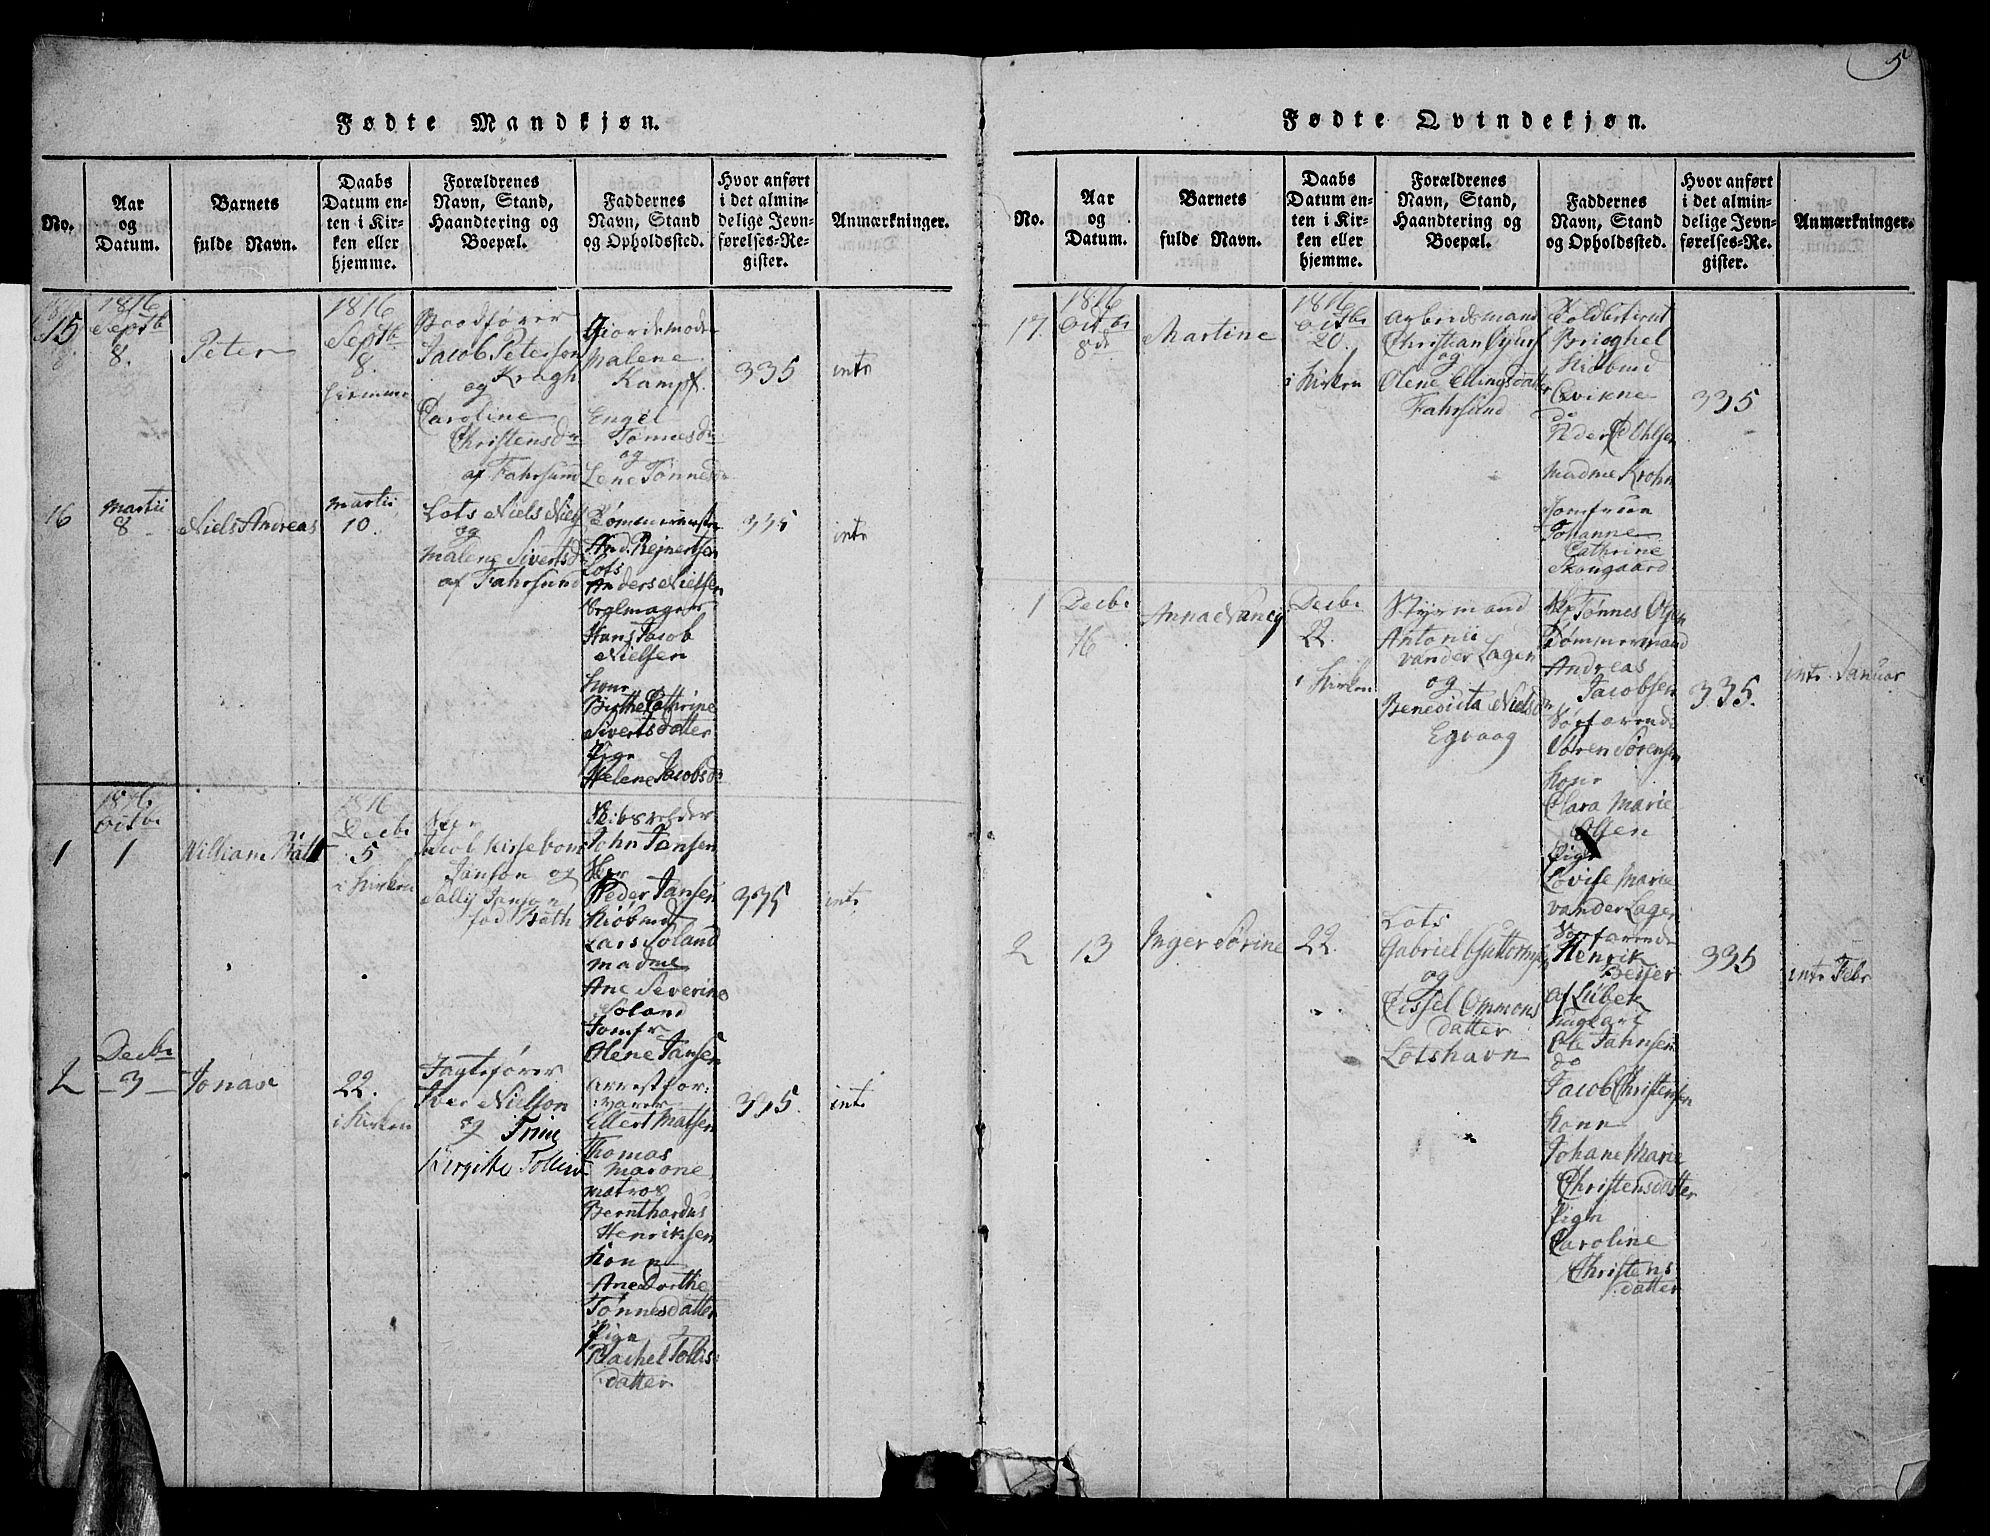 5
Fødte Mandkjøn.
No.
Aar og Datum.
Barnets fulde Navn.
Daabs Datum enten i Kirken eller hjemme.
Forældrenes Navn, Stand, Haandtering og Boepæl.
Faddernes Navn, Stand og Opholdssted.
Hvor anført i det almindelige Jevnførelses-Register.
Anmærkninger.
15
1816
Septb
8.
Peter
1816
Septb
8.
hiemme
Baadfører
Jacob Petersen
og Kragh
Caroline
Christensd
af Fahrsund
Jiordemoder
Malene
Kampf.
Engel
Tønnesd
og
Lene Tønnesd
335
intr
16
Martii
8
Niels Andreas
Martii
10.
Lots Niels Niels
og
Malene Sivertsd
af Fahrsund
Tømmermester
And. Rejnertsen
Lots
Anders Nielsen
Seglmager
Hans Jacob
Nielsen
Kone
Birthe Cathrine
Sivertsdatter
Pige
Helene Jacobsd
335
intr
1
1816
Octbr
1
William Bath
1816
Decbr
5
i Kirken
Jacob Kirsebom
Janson og
Sally Janson
fød Bath
Skibsreder
John Jansen
Peder Jansen
Kiøbmd
Lars Soland
Madme
Ane Severine
Soland
Jomfr
Olene Jansen
335
intr
2
Decbr
3
Jonas
22.
i Kirken
Jagtefører
Iver Nielson
og Trine
Birgitte Tollisd
Arrestfor:
:varer
Ellert Matsen
Thomas
Marone
Matros
Bernthardus
Henriksen
Kone
Ane Dorthe
Tønnesdatter
Pige
Rachel Tollis
datter
335.
intr
Fødte Qvindekjøn.
No.
Aar og Datum.
Barnets fulde Navn.
Daabs Datum enten i Kirken eller hjemme.
Forældrenes Navn, Stand, Haandtering og Boepæl.
Faddernes Navn, Stand og Opholdssted.
Hvor anført i det almindelige Jevnførelses-Register.
Anmærkninger.
17.
1816
Octbr
8de
Martine
1816
Octbr
20.
i Kirken
Arbeidsmand
Christian
og
Olene Ellingsdatter
Fahrsund
Kiøbmd
Qvikne
do
Peder Ohlsen
Madme Krohn
Jomfruen
Johanne
Cathrine
Skougaard
335
1
Decbr
16
Anna Nancy
Decbr
22.
i Kirken
Styrmand
Antonii
van der Lagen
og
Benedicta Nielsd
Egvaag
Tønnes Olsen
Tømmermand
Andreas
Jacobsen
Søefarende
Søren Sørensen
Kone
Clara Marie
Olsen
Pige
Lovise Marie
van der Lagen
335.
intr Januar
2
13
Inger Sørine
22.
Lots
Gabriel Guttorms
og
Sissel Ommons
datter
Lotshavn
Søefarende
Henrik
Besser
af Lübek
Ungkarl
Ole Jahnsen
do
Jacob Christensen
Kone
Johane Marie
Christensdatter
Pige
Caroline
Christens
datter
335
intr Febr